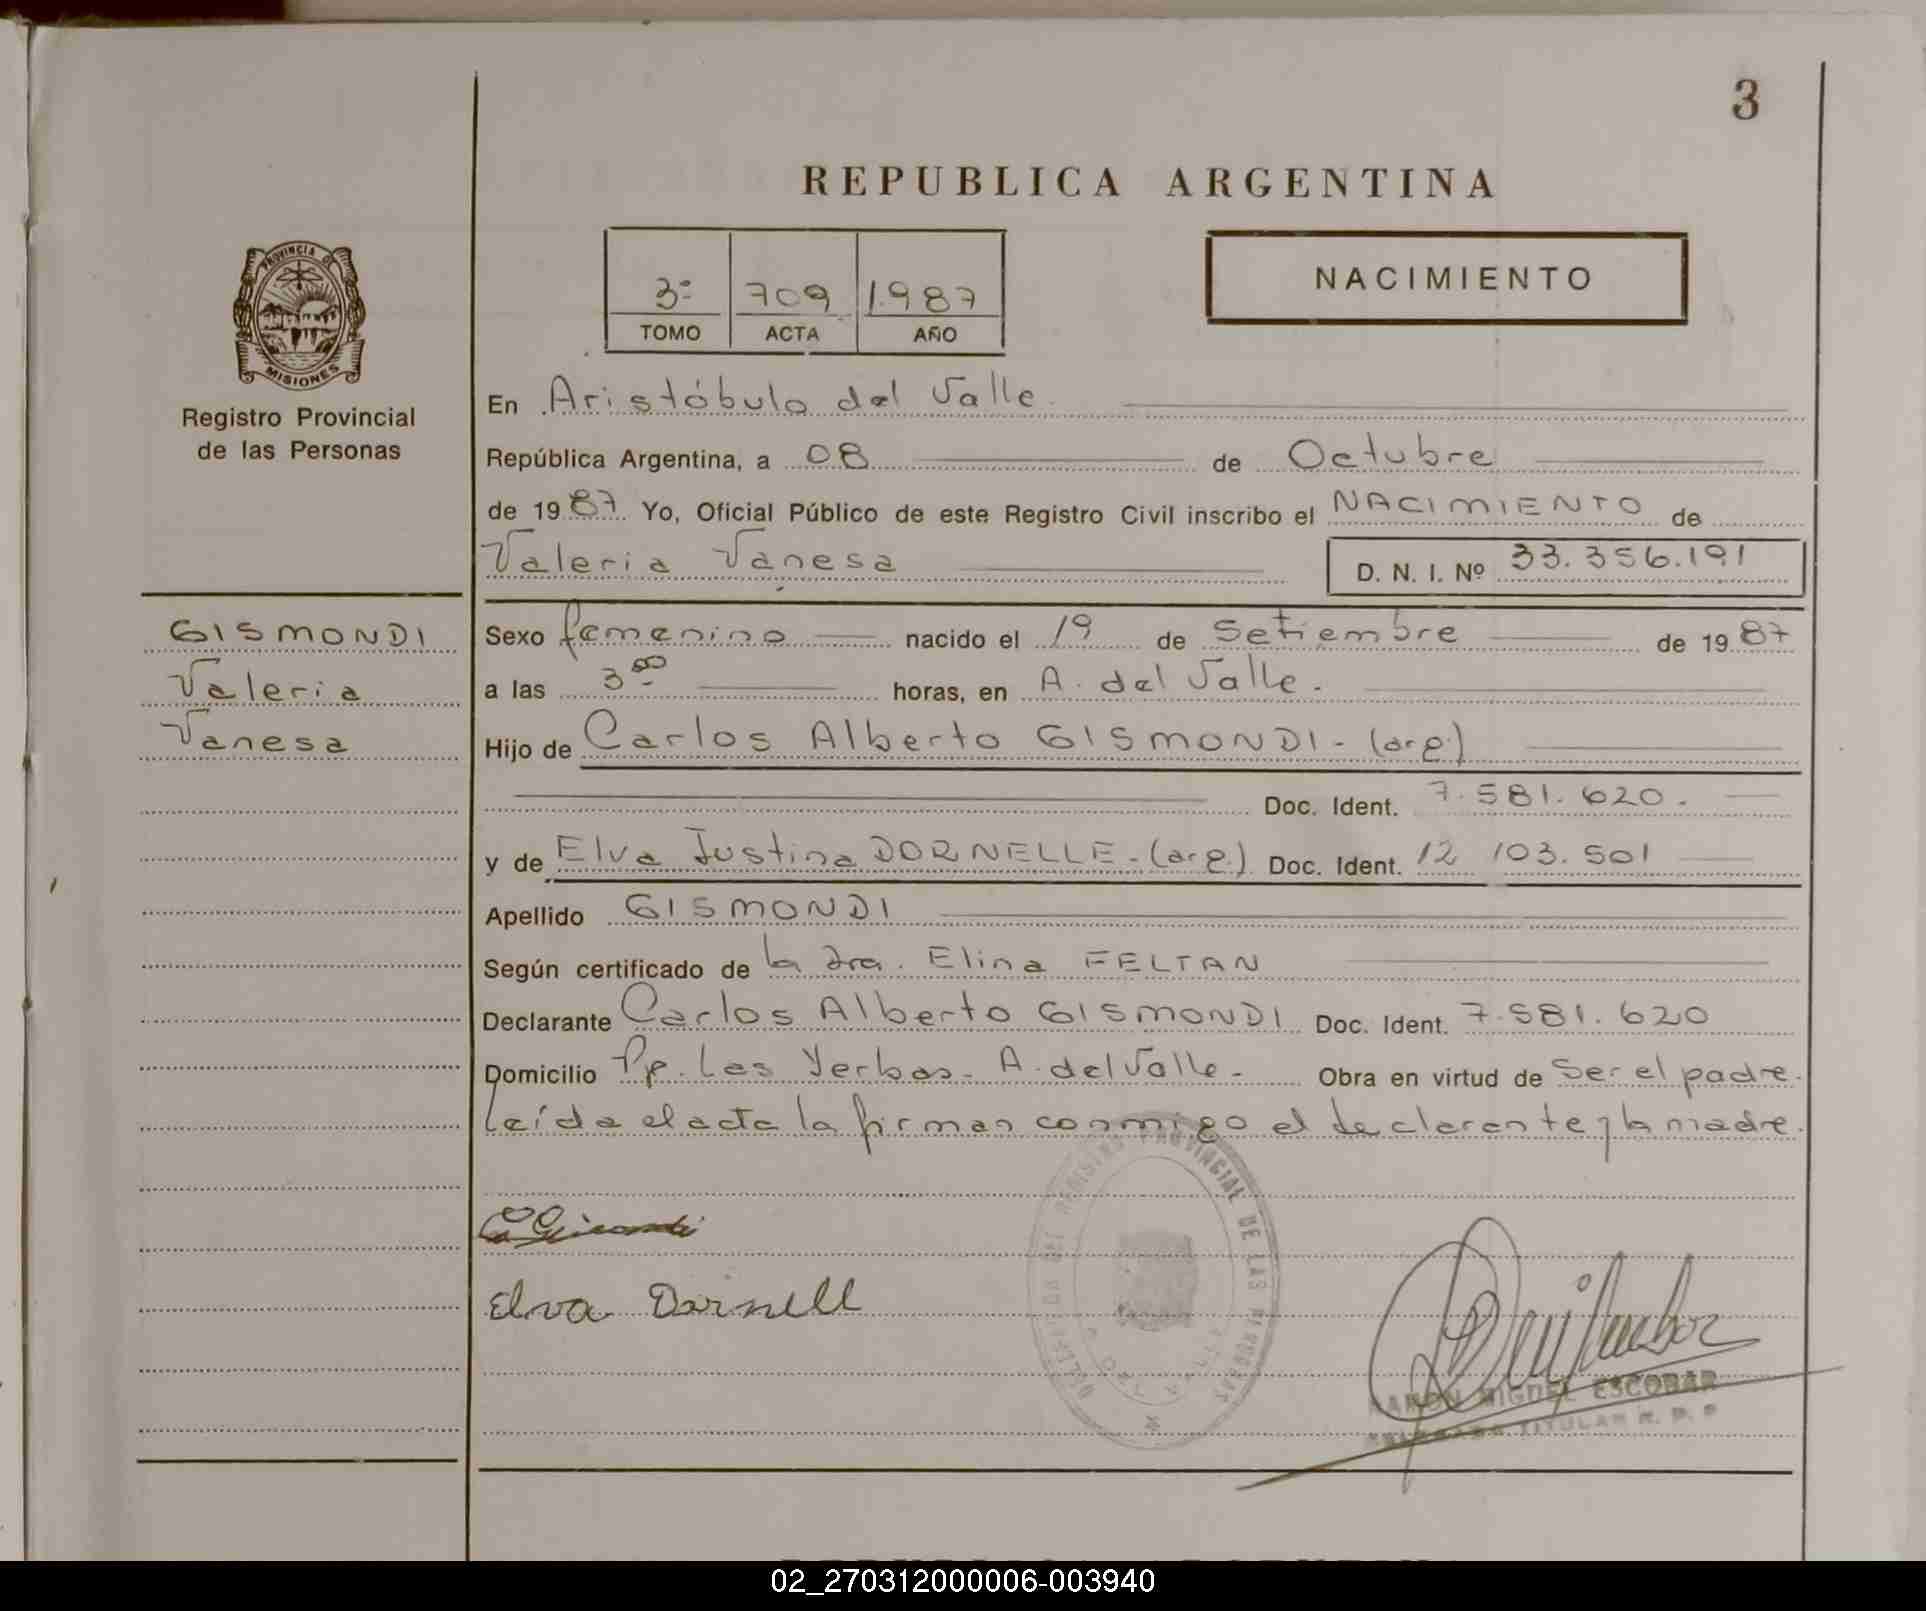 3
REPUBLICA ARGENTINA
PROVINCIA DE
MISIONES
Registro Provincial
de las Personas
3º 709 1.987
TOMO ACTA AÑO
NACIMIENTO
En Aristóbulo del Valle
República Argentina, a 08 de Octubre
de 1987 Yo, Oficial Público de este Registro Civil inscribo el NACIMIENTO de
Valeria Vanesa D. N. I. Nº 33.356.191
GISMONDI
Valeria
Vanesa
Sexo femenino nacido el 19 de Setiembre de 1987
a las 3 00 horas, en A. del Valle.
Hijo de Carlos Alberto GISMONDI - (arg.)
Doc. Ident. 7.581.620.
y de Elva Justina DORNELLE - (arg.) Doc. Ident. 12 103.501
Apellido GISMONDI
Según certificado de la Dra. Elina FELTAN
Declarante Carlos Alberto GISMONDI Doc. Ident. 7.581.620
Domicilio Pp. Las Yerbas - A. del Valle - Obra en virtud de ser el padre.
Leída el acta la firman conmigo el declarante y la madre.
Elva Dornell
REGISTRO PROVINCIAL DE LAS PERSONAS
A. DEL VALLE
RAMON MIGUEL ESCOBAR
TITULAR R. P. P
02_270312000006-003940